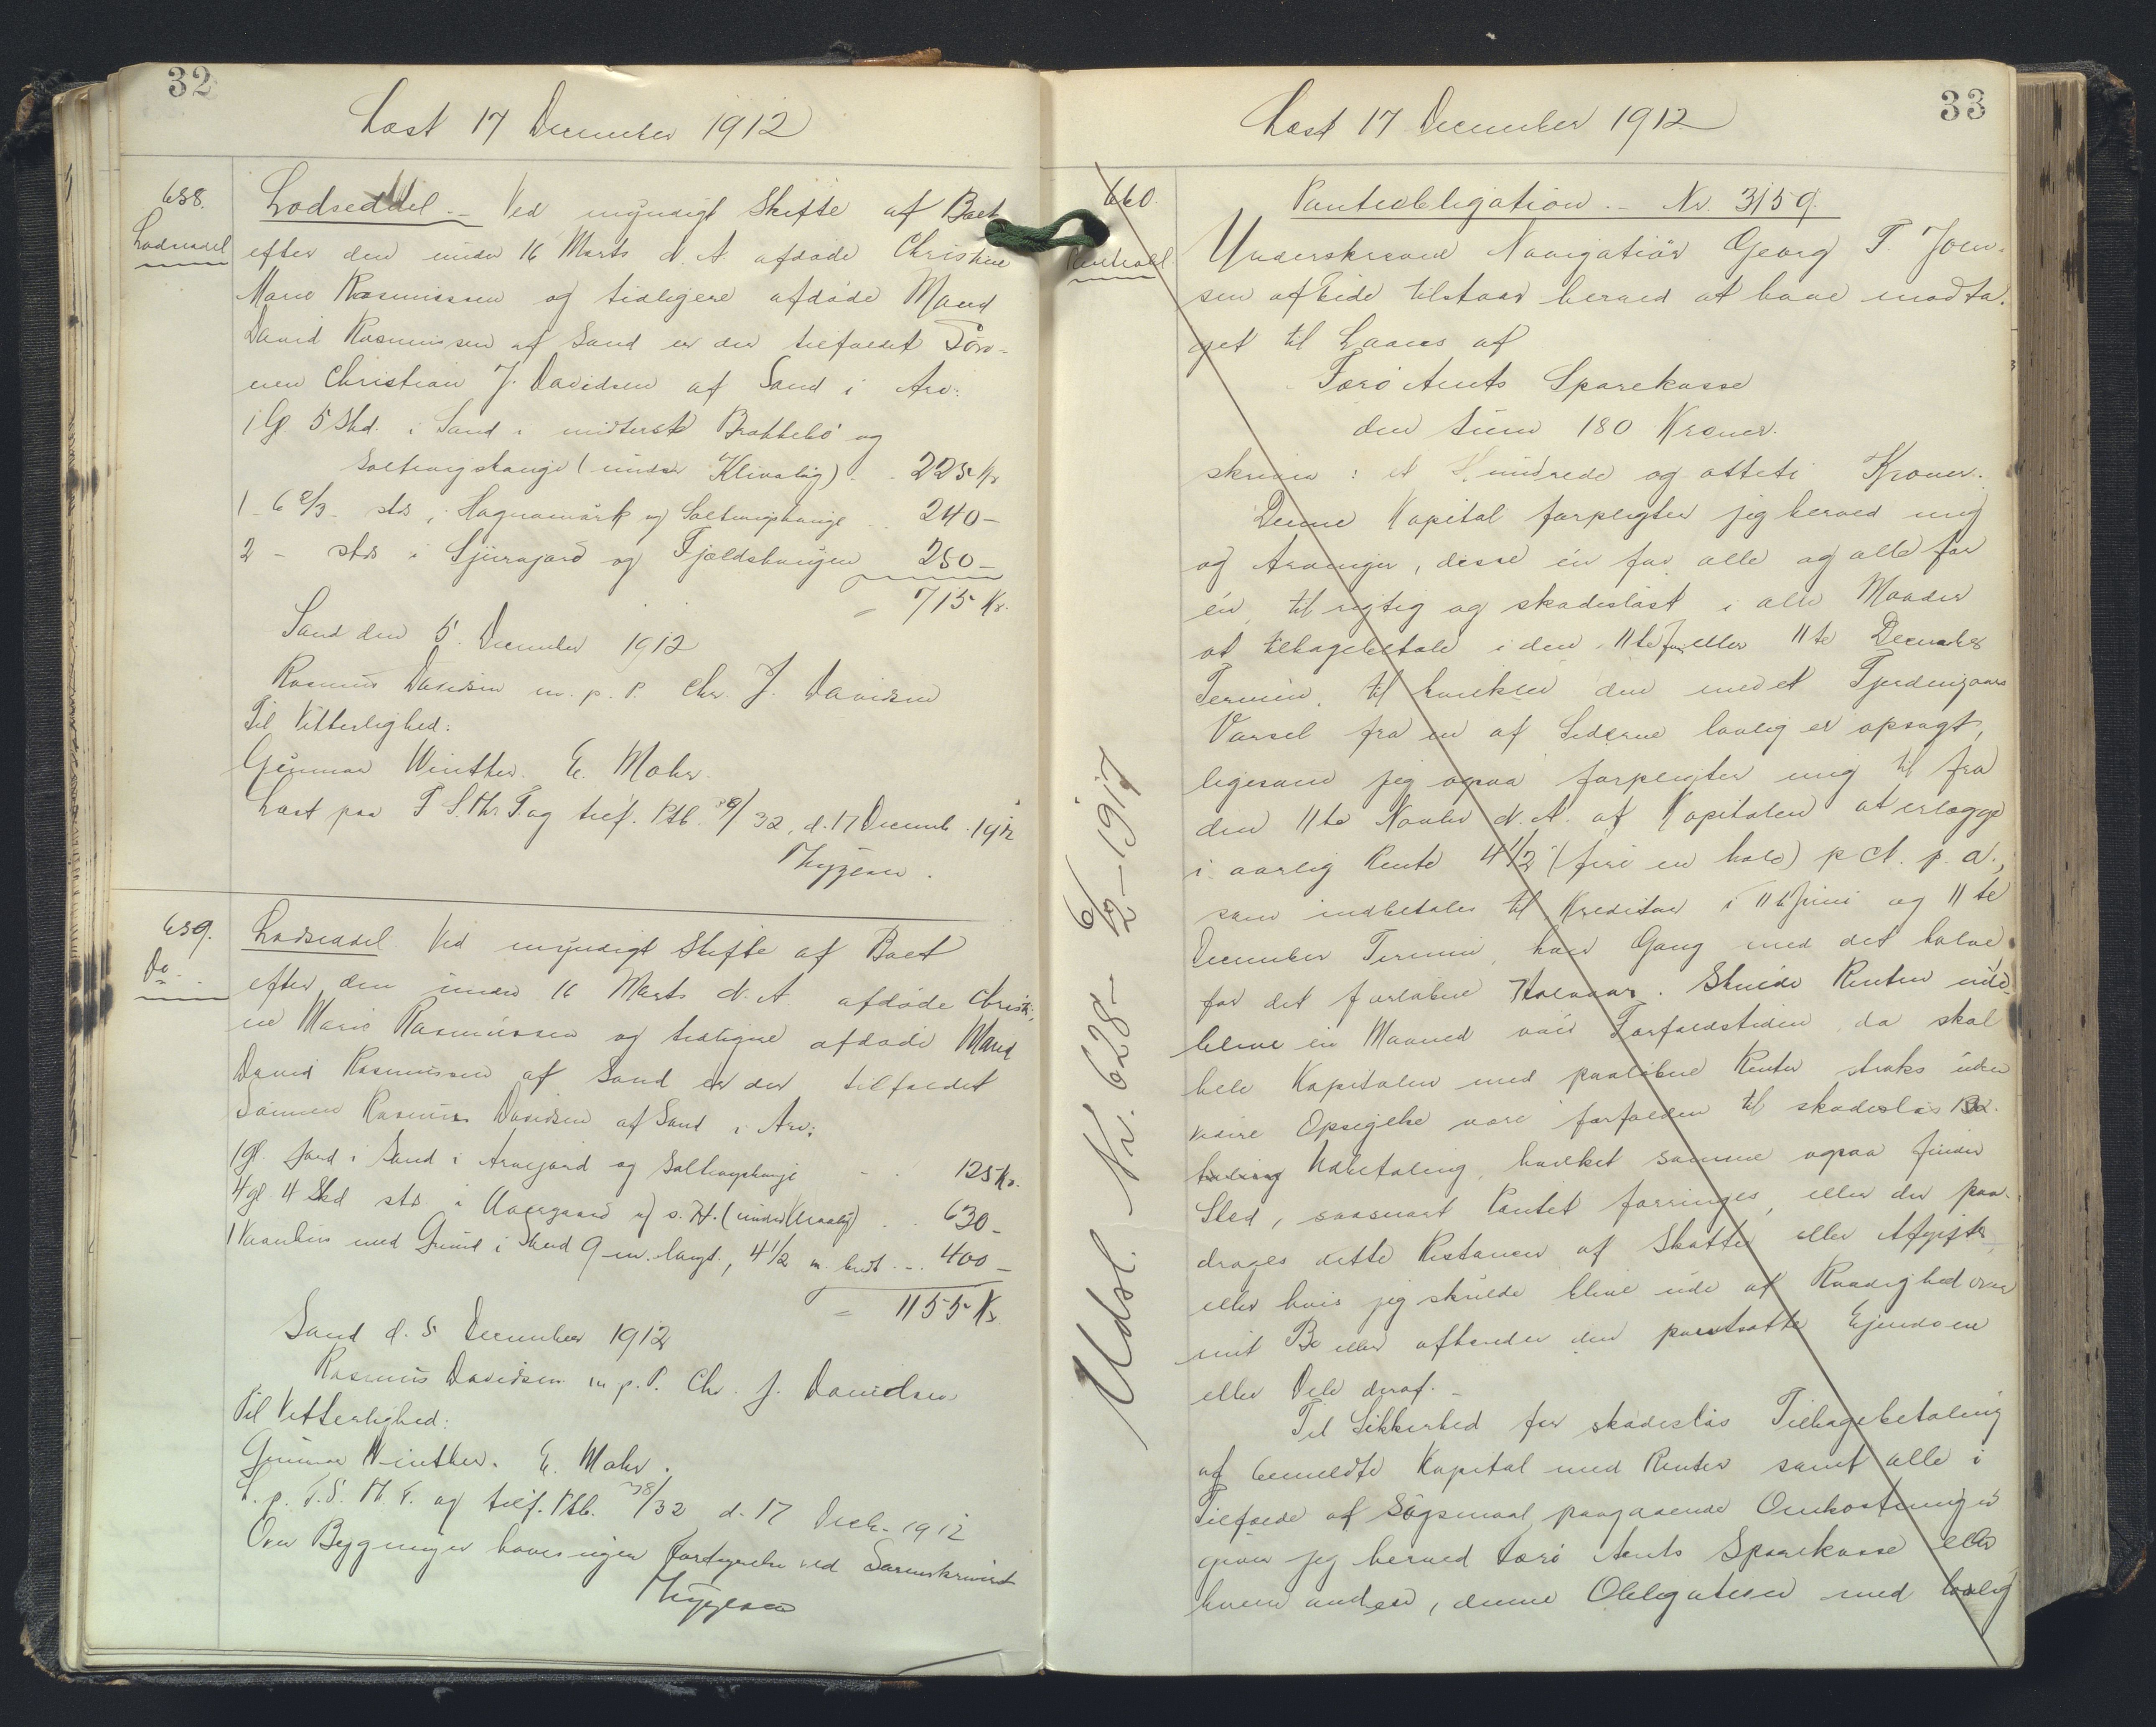 32
Læst 17 December 1912
658.
Lodseddel
Lodseddel. - Ved myndigt Skifte af Boet
efter den under 16 Marts d. A. afdøde Christine
Marie Rasmussen og tidligere afdøde Mand
David Rasmussen af Sand er der tilfaldet Søn-
nen Christian J. Davidsen af Sand i Arv:
1 Gl. 5 Skd. i Sand i midterste Brattebø og
Saltvigshauge (under Klivalág) . . 225 Kr
1 - 6 2/3 - sts i Hagnamark og Saltvigshauge . . 240 -
2 - sts i Sjúragard og Fjældshaugen 250 -
= 715 Kr.
Sand den 5. December 1912
Rasmus Davidsen m. p. P. Chr. J. Davidsen
Til Vitterlighed:
Gunnar Winther. E. Mohr.
Læst paa F. S. Thr. T. og tilf. Ptb. 38/32, d. 17 Decemb. 1912
Thygesen.
659.
Do.
Lodseddel Ved myndigt Skifte af Boet
efter den under 16 Marts d. A. afdøde Christi-
ne Marie Rasmussen og tidligere afdøde Mand
David Rasmussen af Sand er der tilfaldet
Sønnen Rasmus Davidsen af Sand i Arv:
1 gl. Jord i Sand i Arnegard og Saltvigshauge - . . 125 Kr.
4 gl. 4 Skd sts i Uttergaard og s. H. (under Kraalág) . . 630 -
1 Vaanhus med Grund i Sand 9 m. langt, 4 1/2 m. bredt . .. 400 -
= 1155 Kr
Sand d. 5 December 1912
Rasmus Davidsen m. p. P. Chr. J. Davidsen
Til Vitterlighed:
Gunnar Winther. E. Mohr.
L. p. F. S. M. T. og tilf. Ptb. 38/32 d. 17 Decb. 1912
Over Bygninger haves ingen Fortegnelse ved Sorenskriveriet
Thygesen
33
Læst 17 December 1912
660.
Panteobl.
Udsl. Nr. 628 - 6/2 - 1917
Panteobligation. - Nr. 3159.
Underskrevne Navigatiør Georg F. Joen-
sen af Eide tilstaar herved at have modta-
get til Laans af
Færø Amts Sparekasse
den Sum 180 Kroner.
skriver: et Hundrede og otteti Kroner.
Denne Kapital forpligter jeg herved mig
og Arvinger, disse én for alle og alle for
én, til rigtig og skadesløst i alle Maader
at tilbagebetale i den 11te Juni eller 11te December
Termin, til hvilken den med et Fjerdingaars
Varsel fra en af Siderne lovlig er opsagt,
ligesom jeg ogsaa forpligter mig til fra
den 11te Novbr d. A. af Kapitalen at erlægge
i aarlig Rente 4 1/2 (fire en halv) pCt. p. a.,
som indbetales til Kreditor i 11te Juni og 11te
December Termin, hver Gang med det halve
for det forløbne Halvaar. Skulde Renten ude-
blive en Maaned over Forfaldstiden, da skal
hele Kapitalen med paaløbne Renter straks uden
videre Opsigelse være forfalden til skadesløs Be-
taling Udbetaling, hvilket samme ogsaa finder
Sted, saasnart Pantet forringes, eller der paa-
drages dette Restancer af Skatter eller Afgifter,
eller hvis jeg skulde blive ude af Raadighed over
mit Bo eller afhænder den pantsatte Ejendom
eller Dele deraf. -
Til Sikkerhed for skadesløs Tilbagebetaling
af bemeldte Kapital med Renter samt alle i
Tilfælde af Søgsmaal paagaaende Omkostninger
giver jeg herved Færø Amts Sparekasse eller
hvem anden, denne Obligation med lovlig